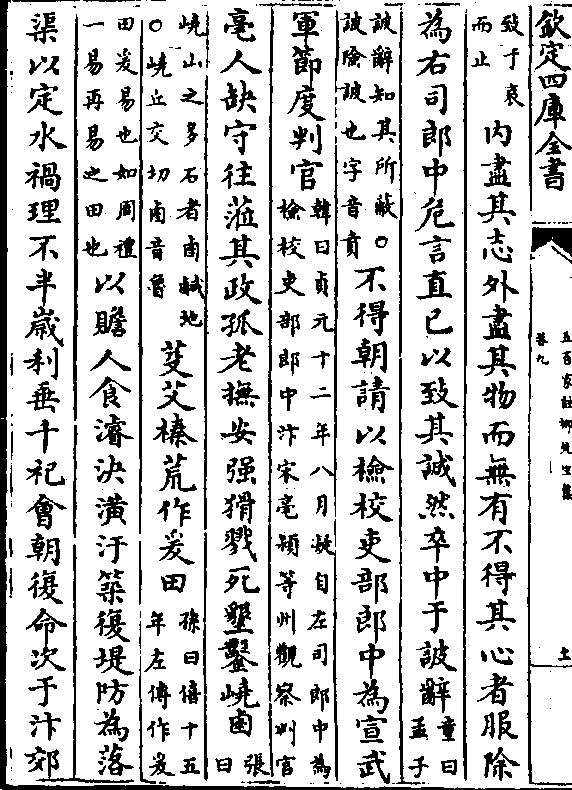 欽定四庫全書
五百家註柳先生集
卷九
十一
致于哀
而止
內盡其志外盡其物而無有不得其心者服除
為右司郎中危言直己以致其誠然卒中于詖辭
童曰
孟子
詖辭知其所蔽○
詖險詖也字音賁
不得朝請以檢校吏部郎中為宣武
軍節度判官
韓曰貞元十二年八月凝自左司郎中為
檢校吏部郎中汴宋亳潁等州觀察判官
亳人缺守往蒞其政孤老撫安强猾戮死墾鑿嶢鹵
張
曰
嶢山之多石者鹵鹹地
○嶢丘交切鹵音魯
芟艾榛荒作爰田
孫曰僖十五
年左傳作爰
田爰易也如周禮
一易再易之田也
以贍人食濬決潢汙築復堤防為落
渠以定水禍理不半歲利垂千祀會朝復命次于汴郊